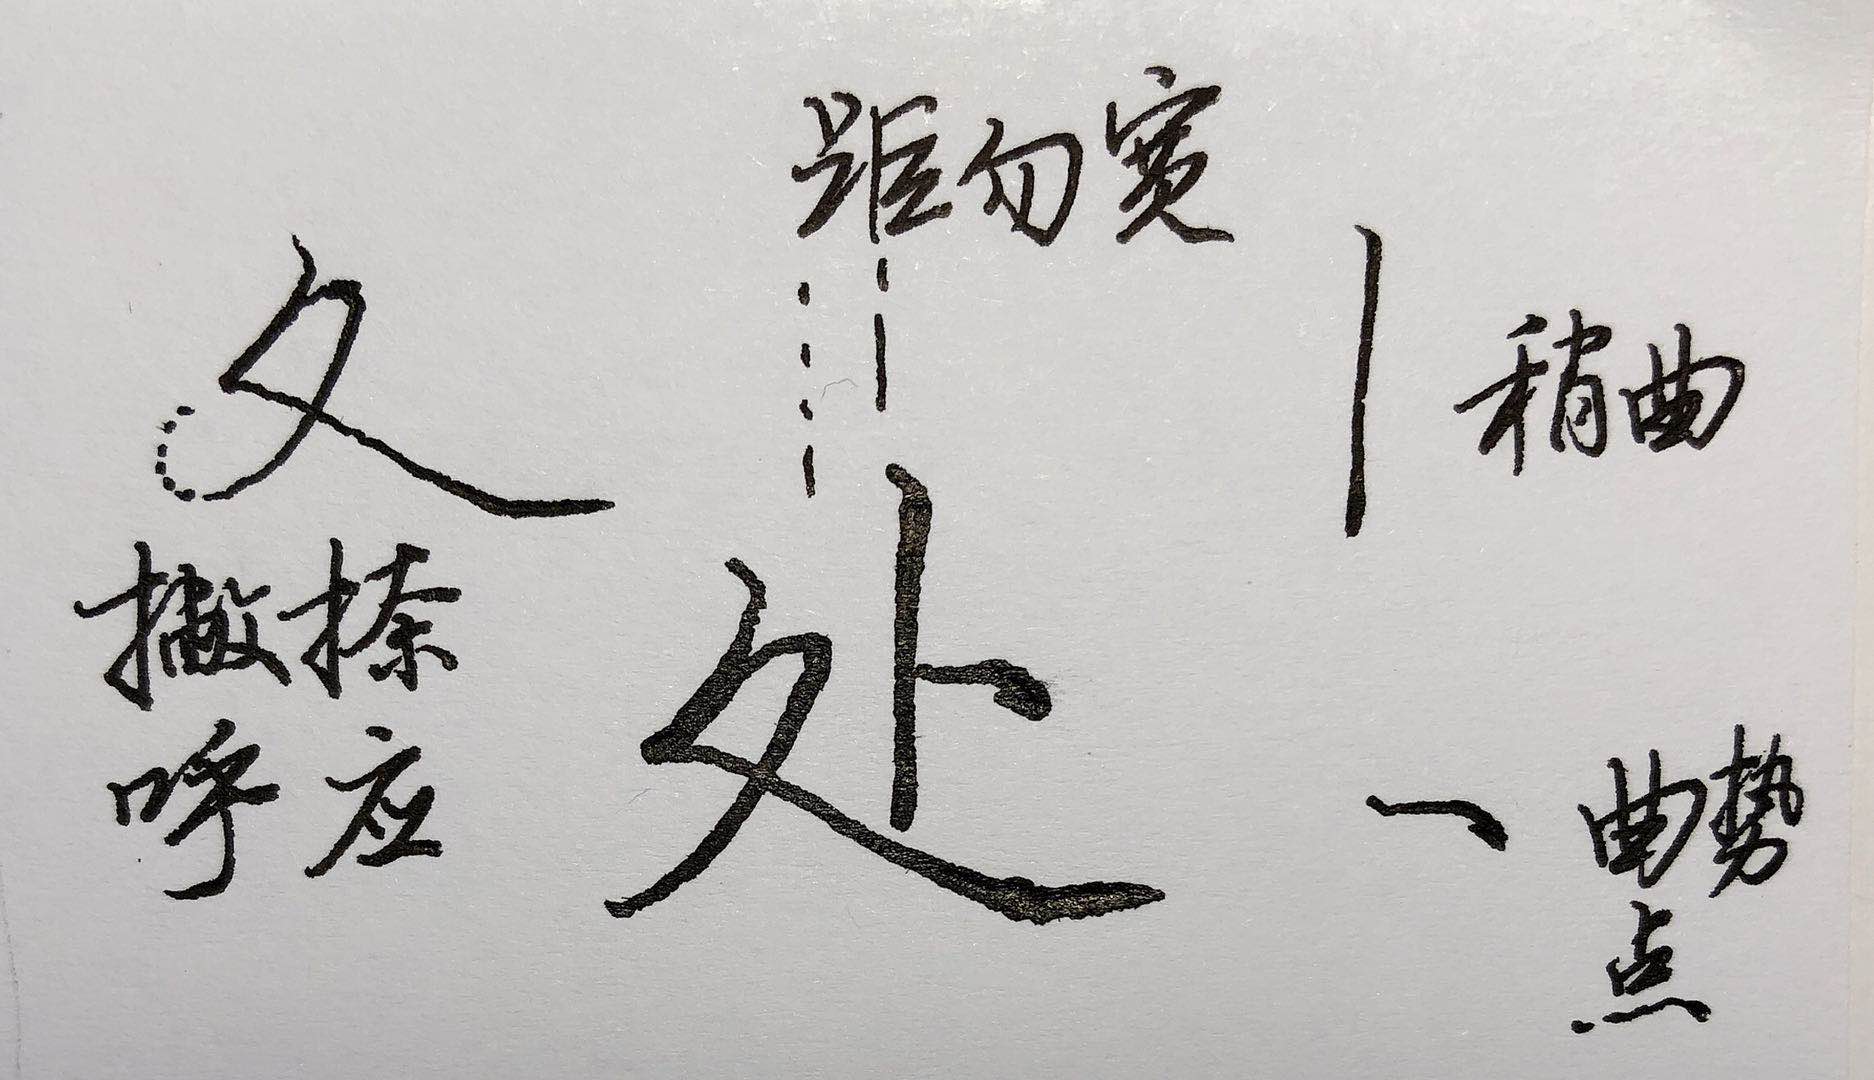 距勿宽
夂
撇捺
呼应
处
稍曲
曲势
点